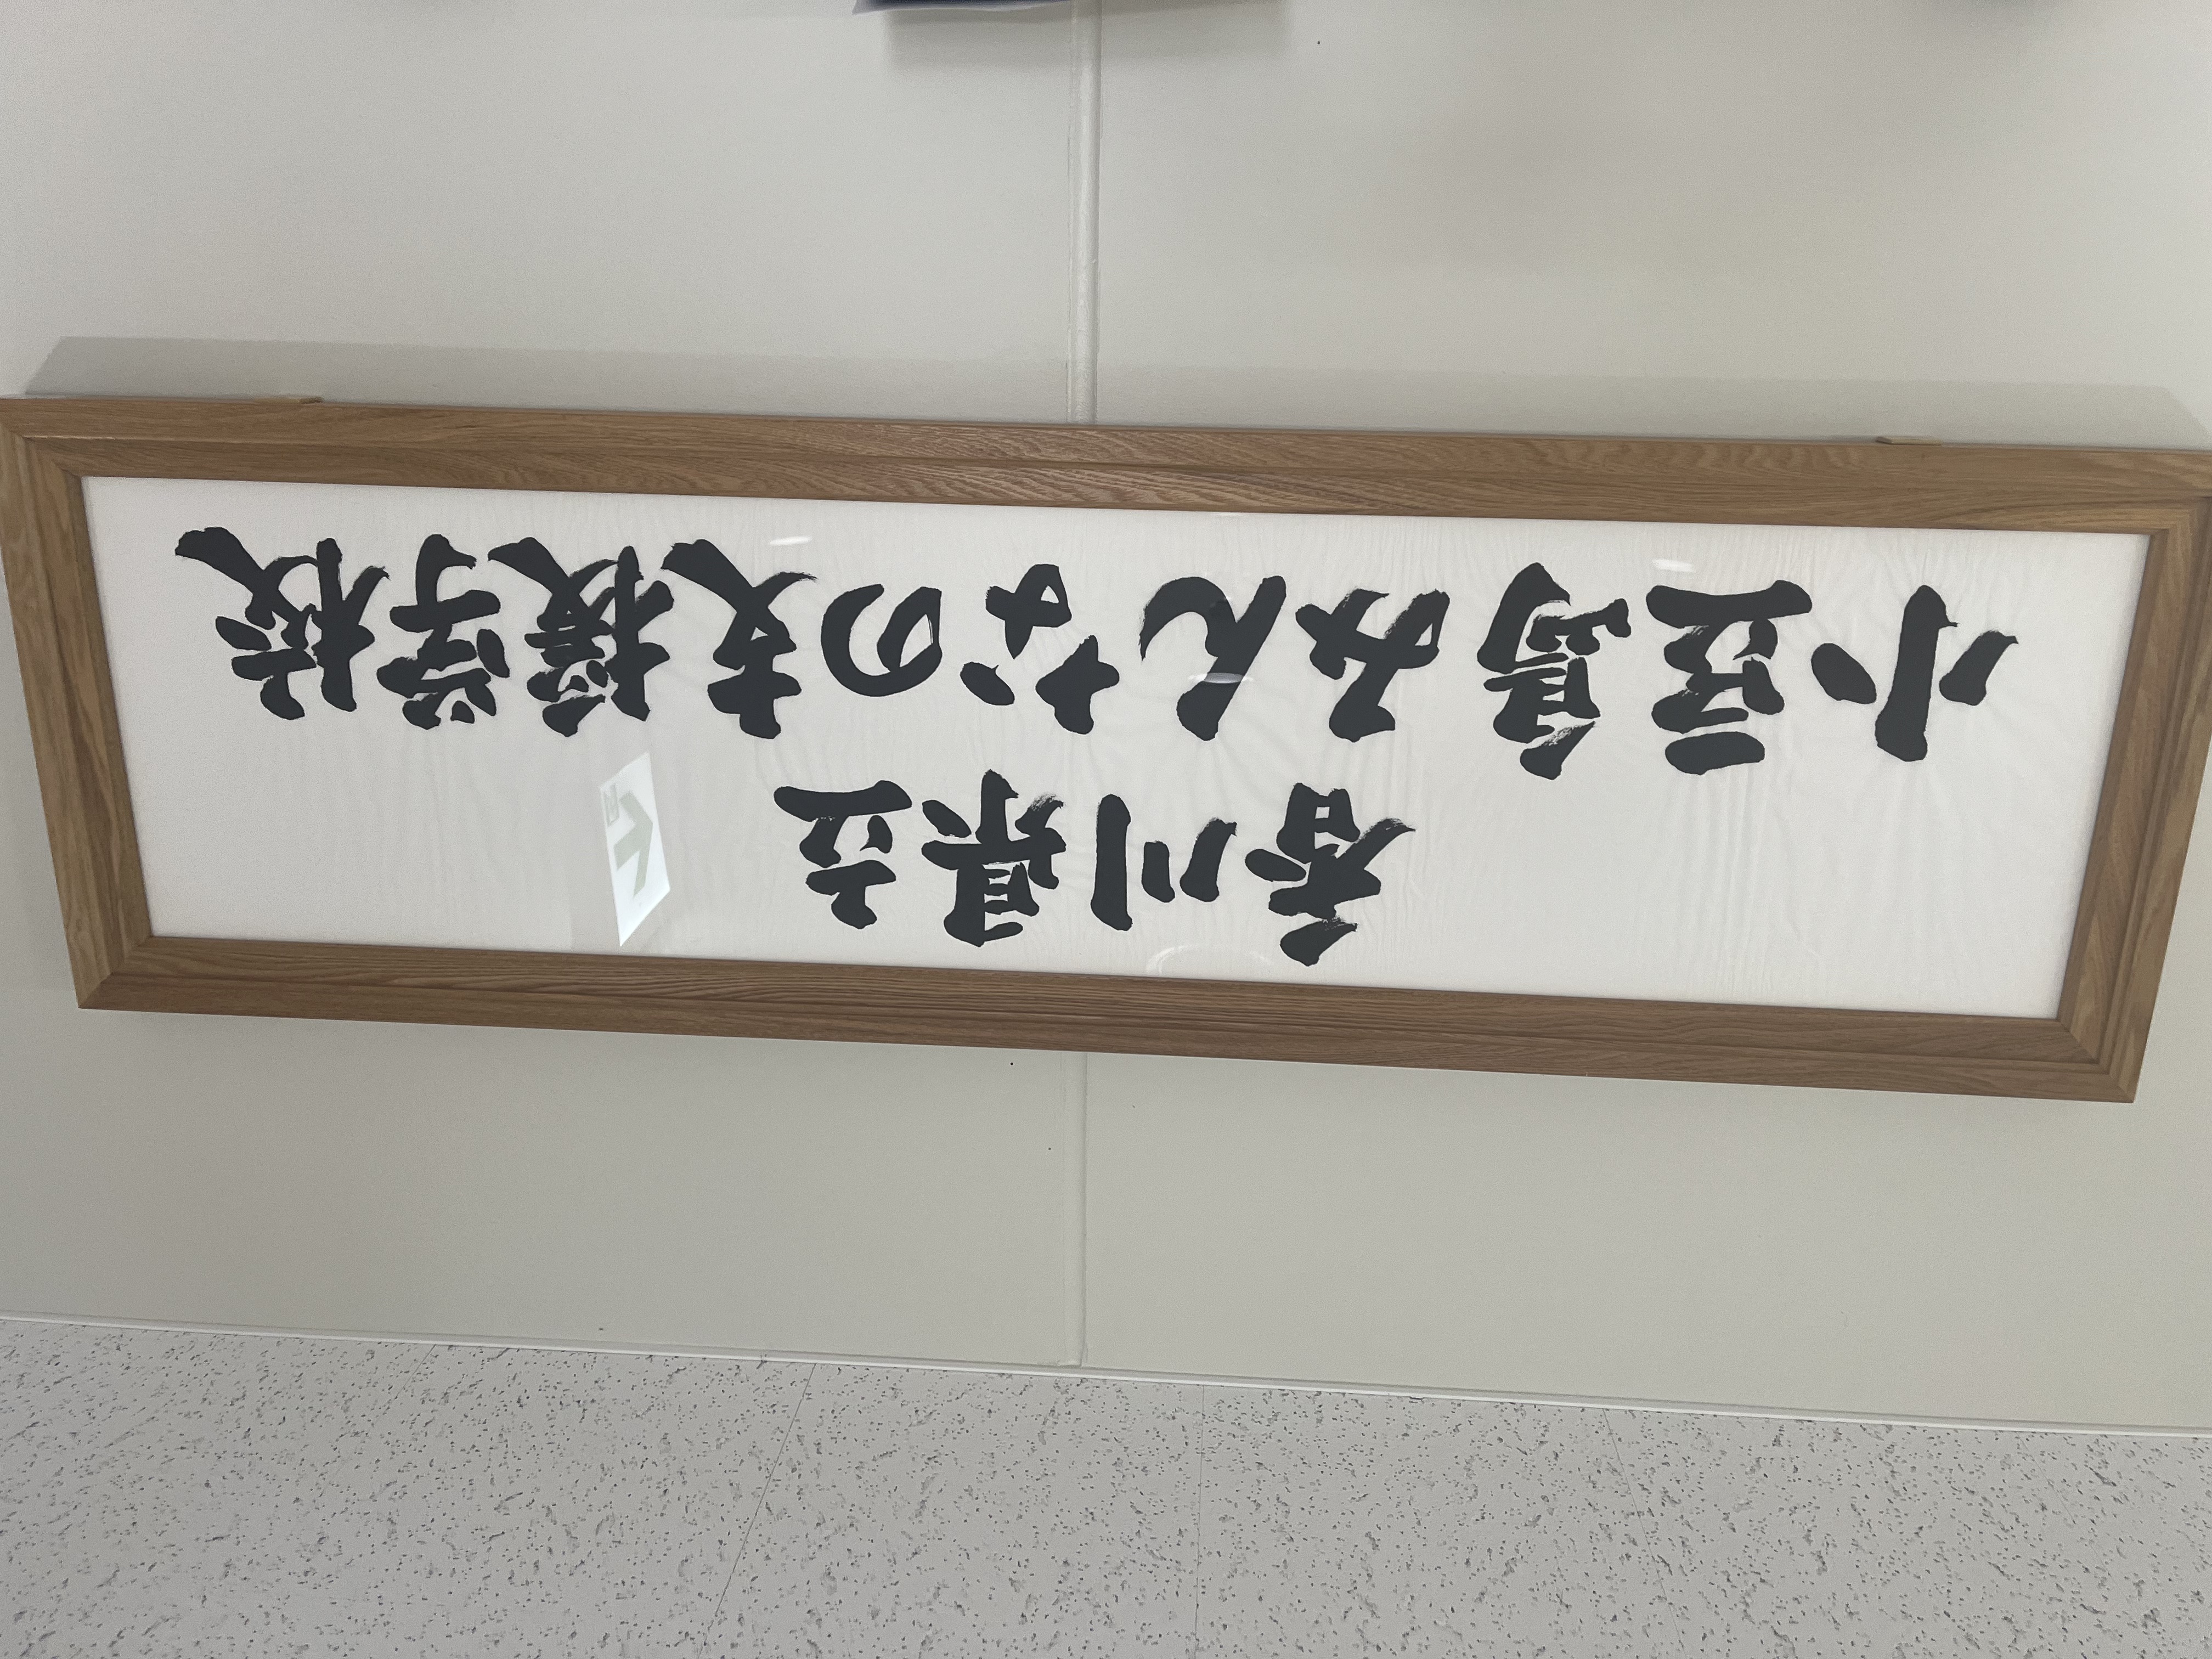 香川県立
小豆島みんなの支援学校